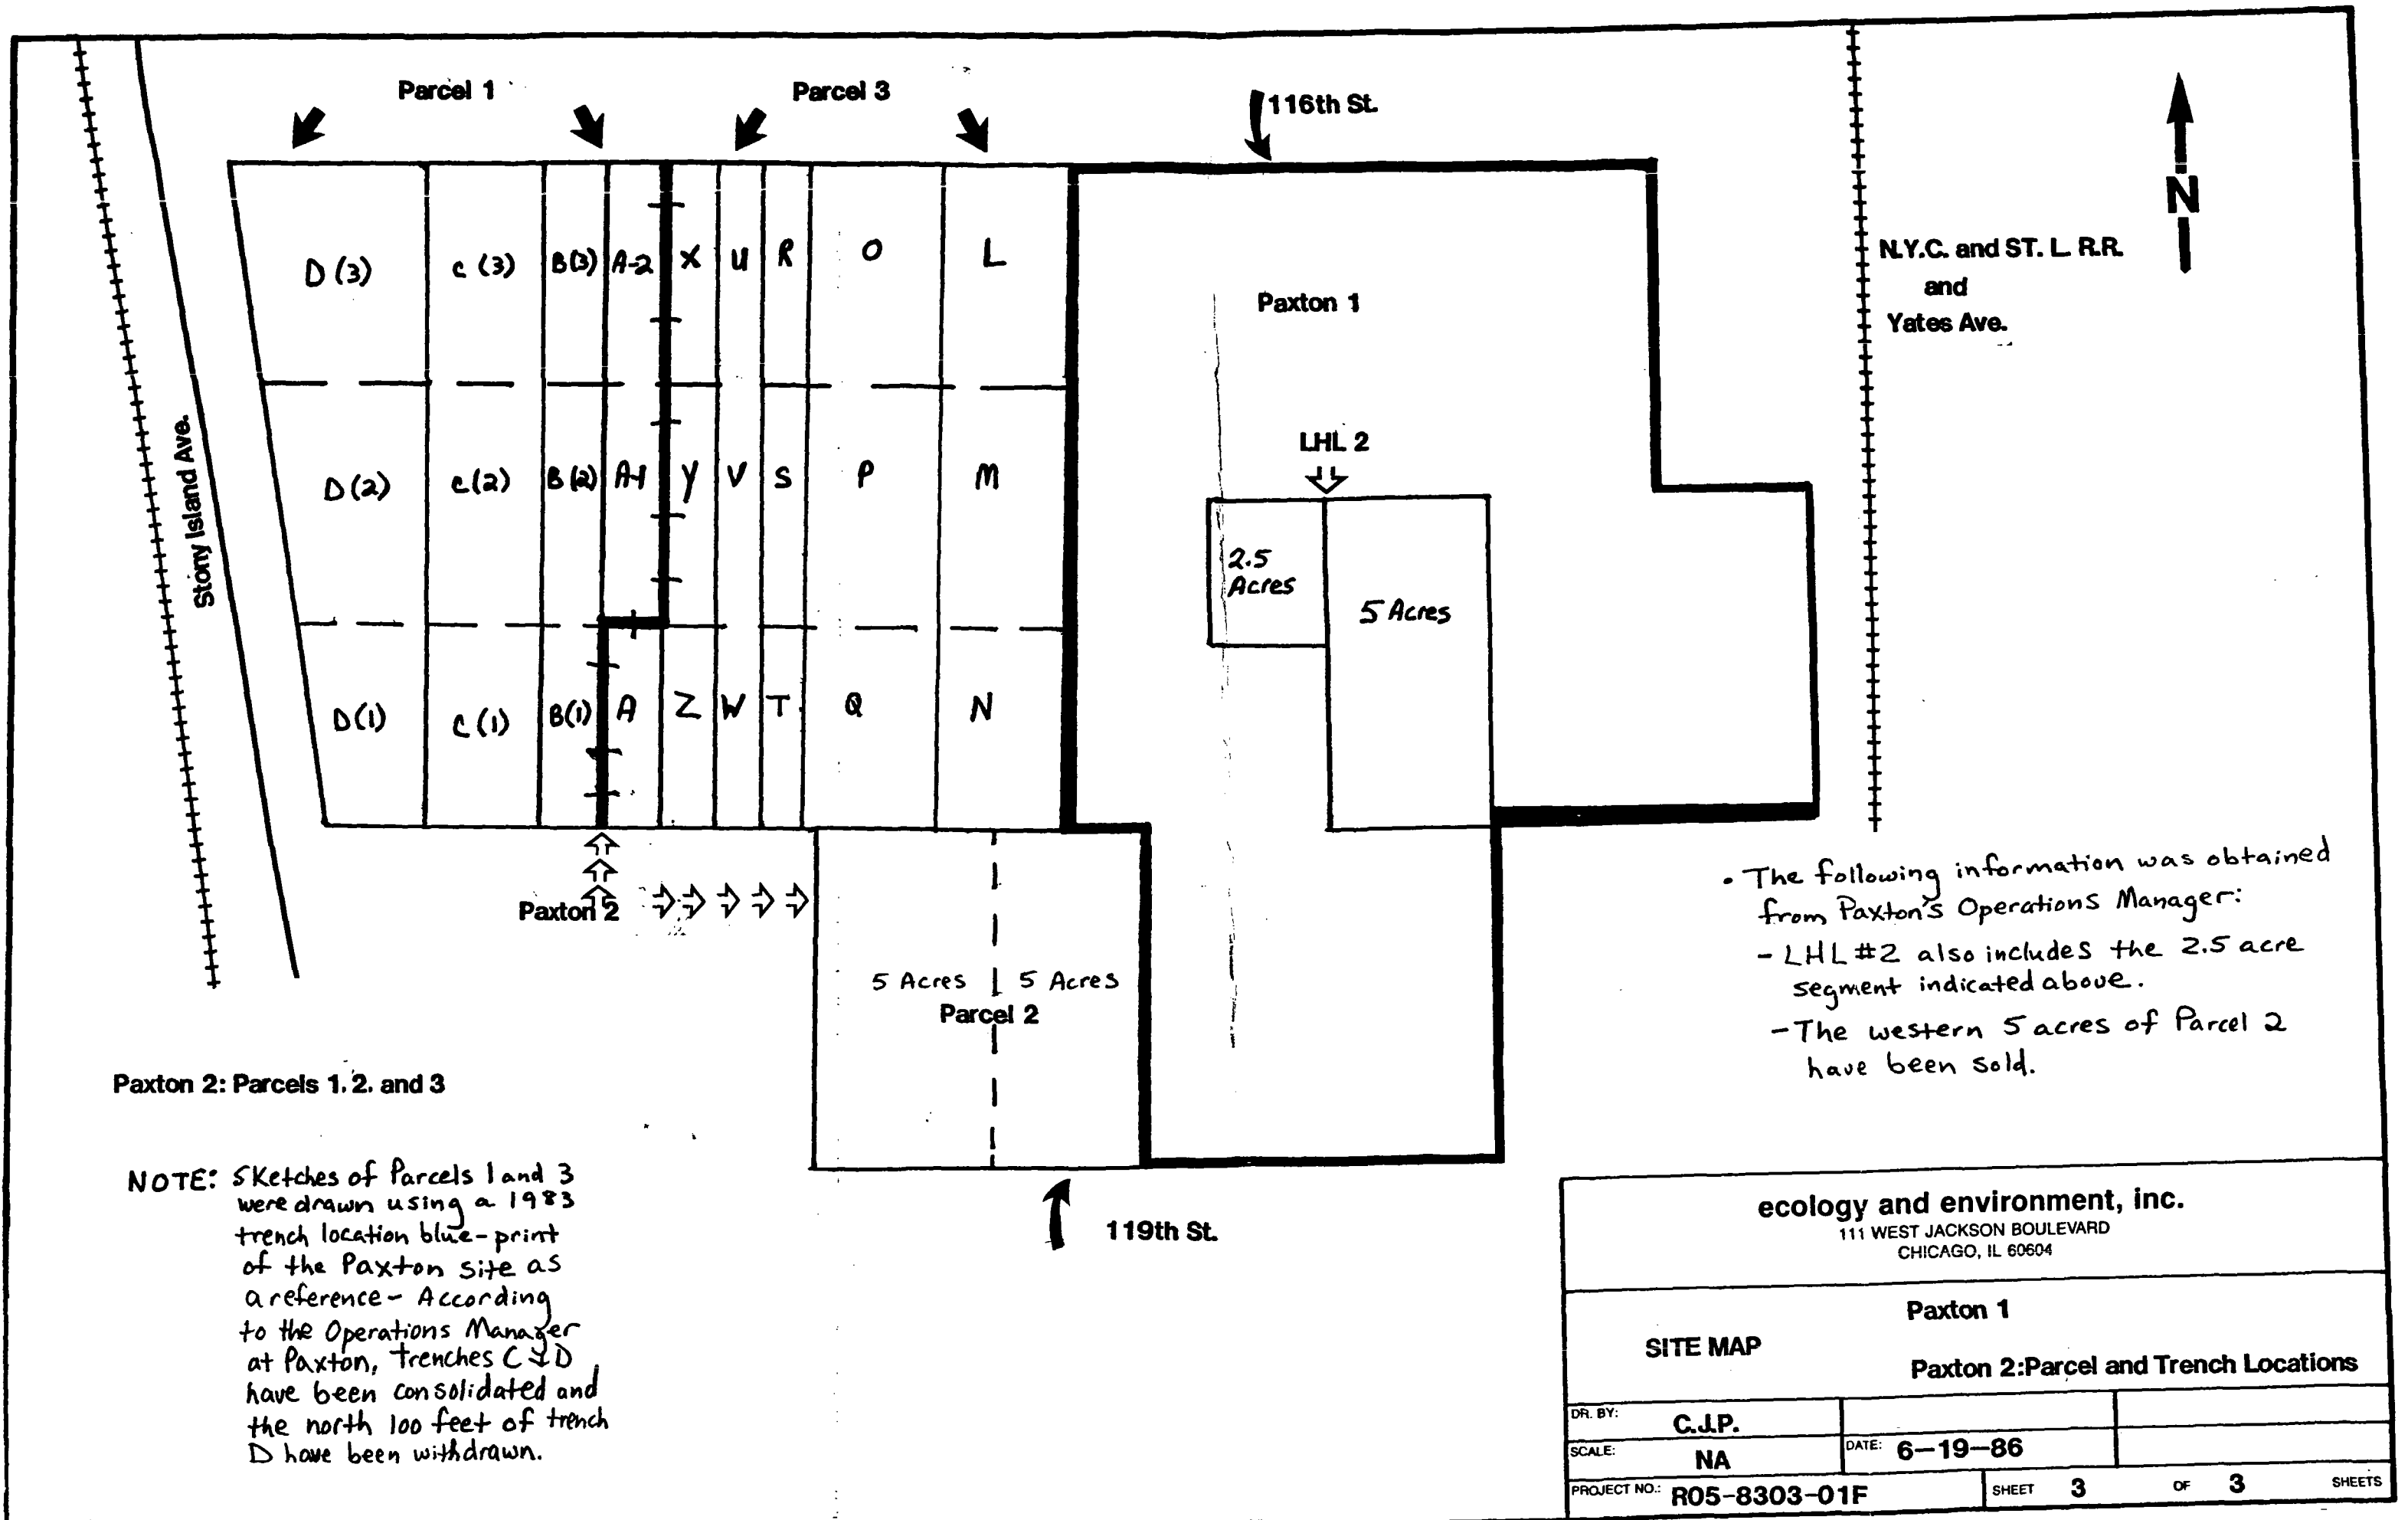 Parcel 1
Parcel 3
116th St.
N
N.Y.C. and ST. L. R.R.
and
Yates Ave.
Stony Island Ave.
D (3)
C (3)
B(3)
A-2
X
U
R
O
L
Paxton 1
LHL 2
D(2)
C(2)
B(2)
A-1
Y
V
S
P
M
2.5
Acres
5 Acres
D(1)
C(1)
B(1)
A
Z
W
T
Q
N
Paxton 2
5 Acres
5 Acres
Parcel 2
• The following information was obtained
from Paxton's Operations Manager:
- LHL #2 also includes the 2.5 acre
segment indicated above.
- The western 5 acres of Parcel 2
have been sold.
Paxton 2: Parcels 1. 2. and 3
NOTE: Sketches of Parcels 1 and 3
were drawn using a 1983
trench location blue-print
of the Paxton site as
a reference - According
to the Operations Manager
at Paxton, trenches C & D
have been consolidated and
the north 100 feet of trench
D have been withdrawn.
119th St.
ecology and environment, inc.
111 WEST JACKSON BOULEVARD
CHICAGO, IL 60604
SITE MAP
Paxton 1
Paxton 2:Parcel and Trench Locations
DR. BY: C.J.P.
SCALE: NA
DATE: 6-19-86
PROJECT NO.: R05-8303-01F
SHEET 3 OF 3 SHEETS